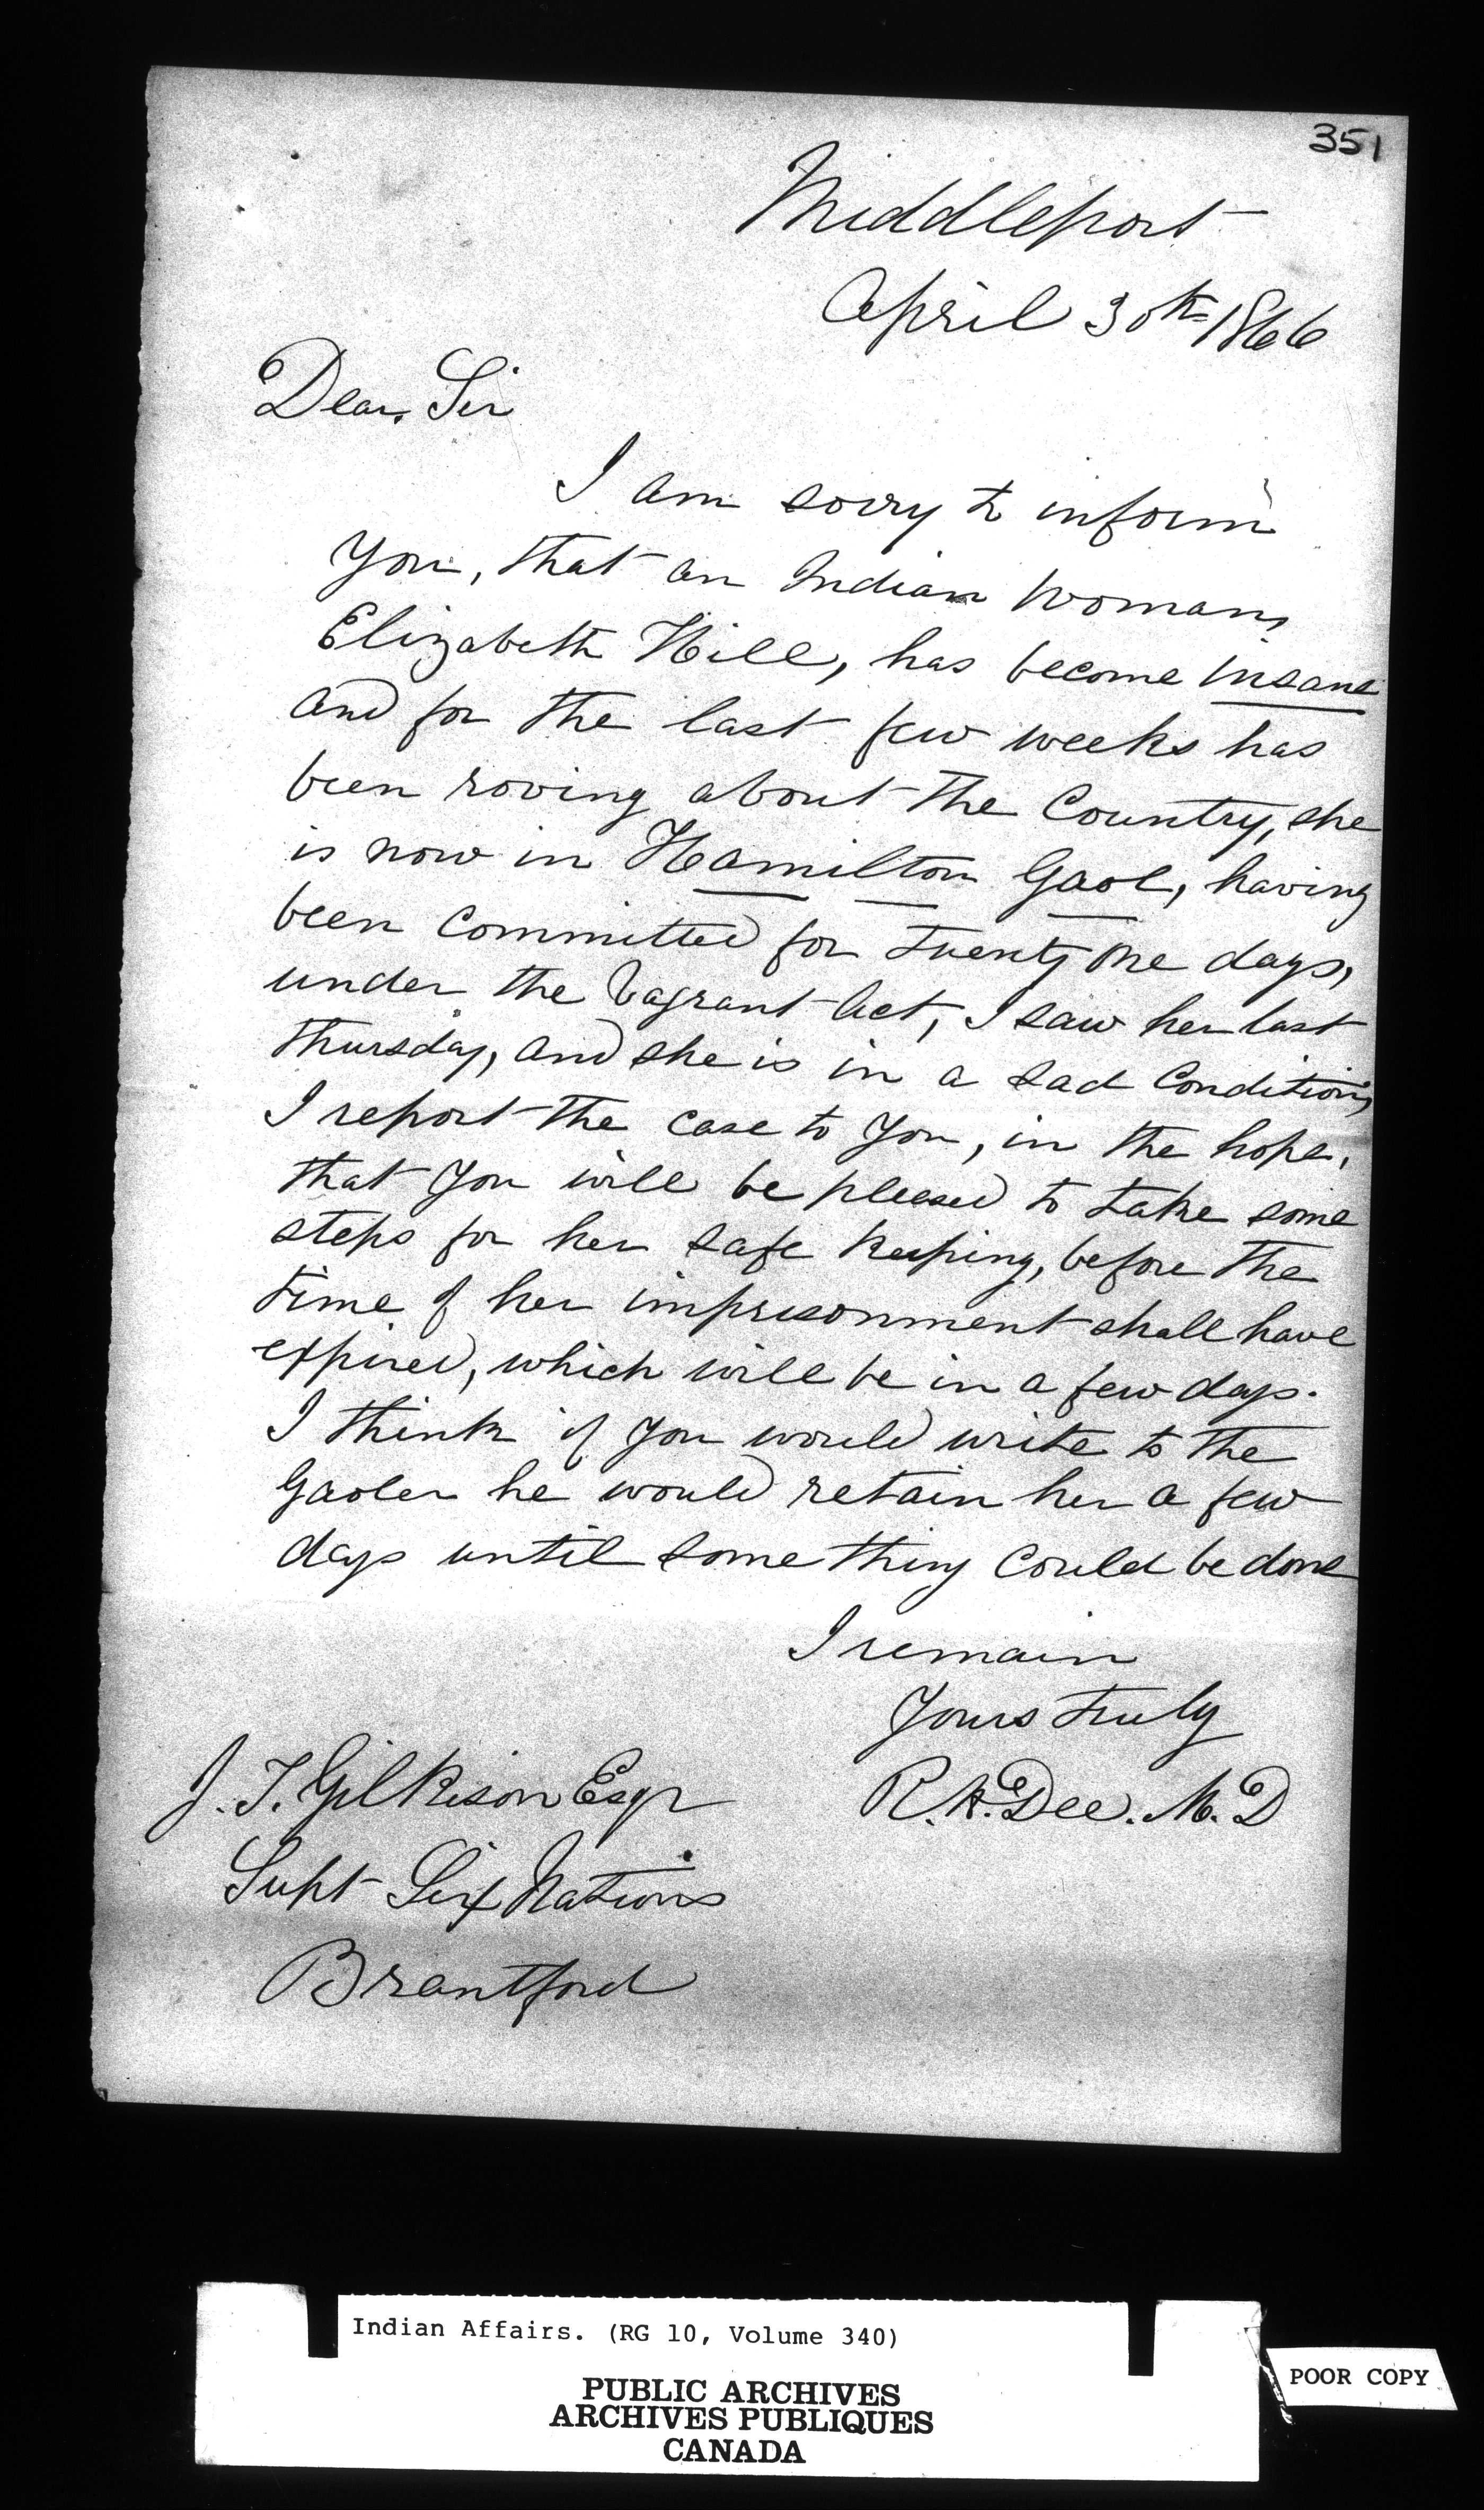 351
Middleport
April 30th 1866
Dear Sir
I am sorry to inform
You, that an Indian Woman,
Elizabeth Hill, has become insane
and for the last few weeks has
been roving about the Country, she
is now in Hamilton Gaol, having
been Committed for twenty one days,
under the Vagrant Act, I saw her last
thursday, and she is in a sad Condition,
I report the case to You, in the hope,
that You will be pleased to take some
steps for her safe keeping, before the
time of her imprisonment shall have
expired, which will be in a few days.
I think if You would write to the
Gaoler he would retain her a few
days until some thing could be done
I remain
Yours truly
R. H. Dee. M. D
J. T. Gilkison Esqr
Supt Six Nations
Brantford
Indian Affairs. (RG 10, Volume 340)
PUBLIC ARCHIVES
ARCHIVES PUBLIQUES
CANADA
POOR COPY